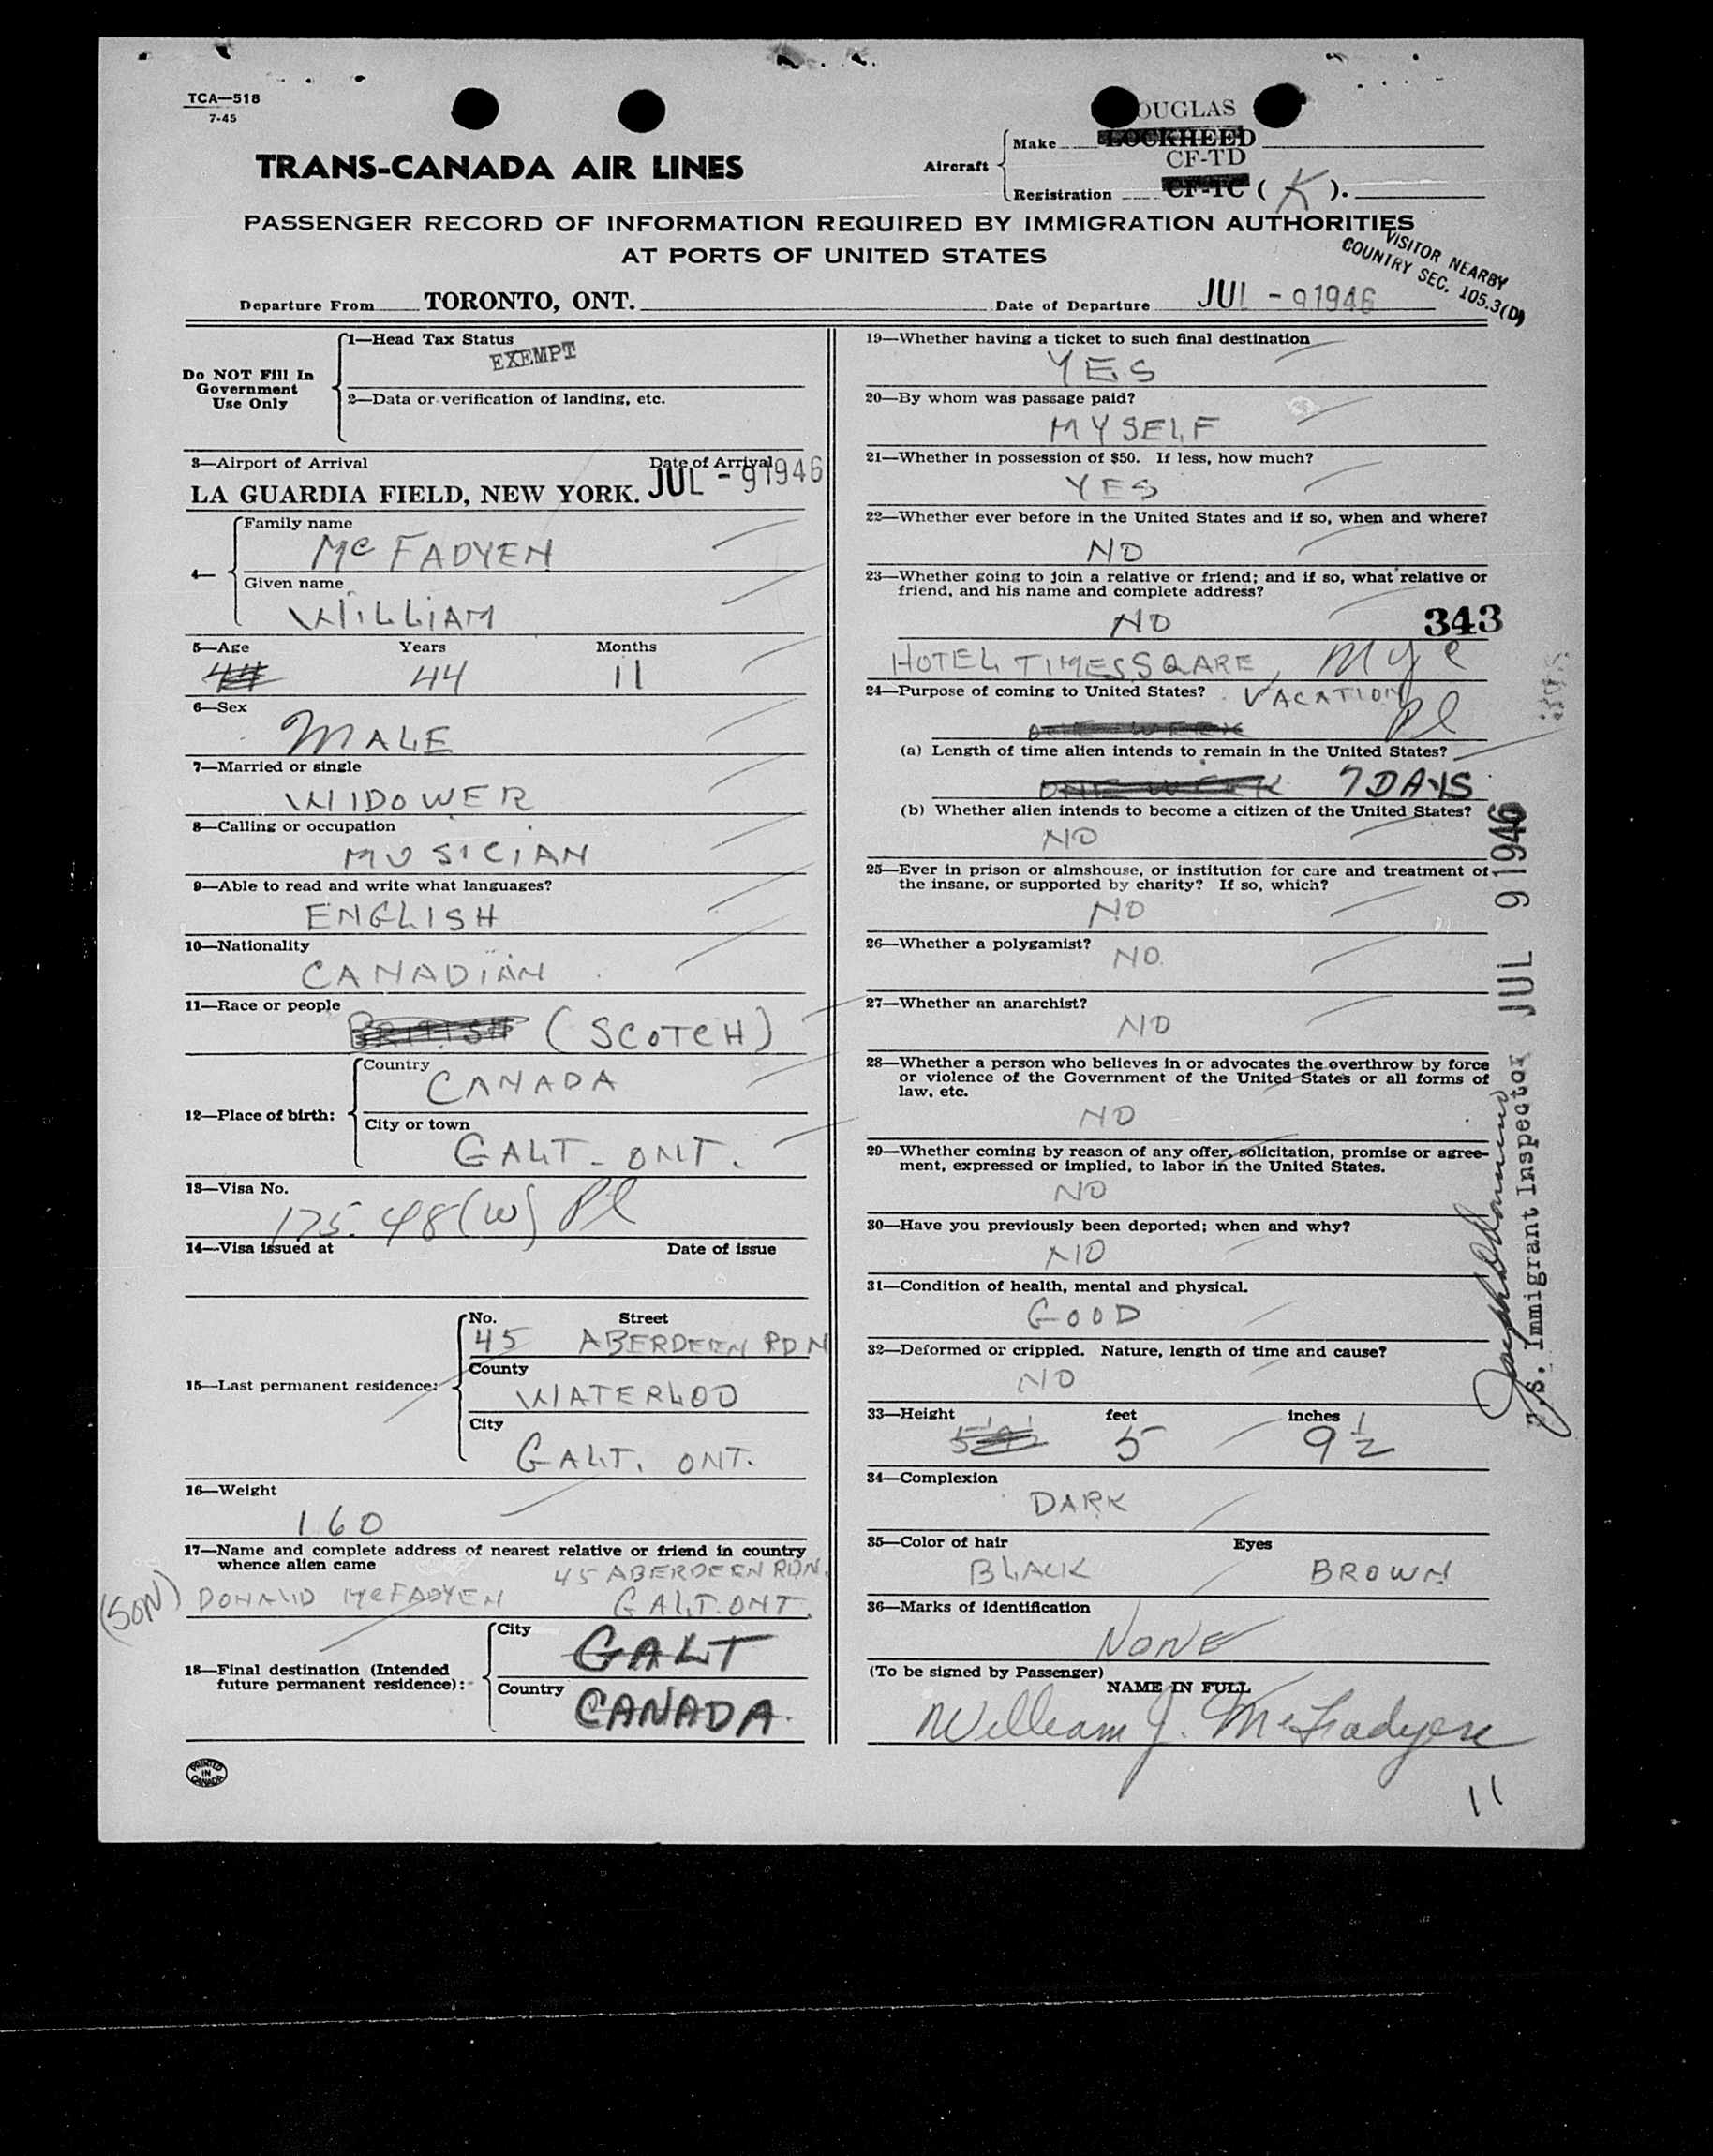 TCA—518
7-45
OUGLAS
Make LOCKHEED
CF-TD
Aircraft
Registration CF-TC ( K ).
TRANS-CANADA AIR LINES
PASSENGER RECORD OF INFORMATION REQUIRED BY IMMIGRATION AUTHORITIES
AT PORTS OF UNITED STATES
VISITOR NEARBY
COUNTRY SEC. 105.3(D)
Departure From TORONTO, ONT. Date of Departure JUL - 9 1946
Do NOT Fill In
Government
Use Only
1—Head Tax Status
EXEMPT
2—Data or verification of landing, etc.
3—Airport of Arrival Date of Arrival
LA GUARDIA FIELD, NEW YORK. JUL - 9 1946
4— Family name
Mc FADYEN
Given name
WILLIAM
5—Age Years Months
44 44 11
6—Sex
MALE
7—Married or single
WIDOWER
8—Calling or occupation
MUSICIAN
9—Able to read and write what languages?
ENGLISH
10—Nationality
CANADIAN
11—Race or people
BRITISH (SCOTCH)
12—Place of birth:
Country
CANADA
City or town
GALT - ONT.
13—Visa No.
175.48(W) Pl
14—Visa issued at Date of issue
15—Last permanent residence:
No. Street
45 ABERDEEN RD N
County
WATERLOO
City
GALT. ONT.
16—Weight
160
17—Name and complete address of nearest relative or friend in country
whence alien came
45 ABERDEEN RDN.
(SON) DONALD McFADYEN GALT. ONT.
18—Final destination (Intended
future permanent residence):
City
GALT
Country
CANADA.
PRINTED
IN
CANADA
19—Whether having a ticket to such final destination
YES
20—By whom was passage paid?
MYSELF
21—Whether in possession of $50. If less, how much?
YES
22—Whether ever before in the United States and if so, when and where?
NO
23—Whether going to join a relative or friend; and if so, what relative or
friend, and his name and complete address?
NO 343
HOTEL TIMES SQARE, Nyc
24—Purpose of coming to United States? VACATION
ONE WEEK Pl
(a) Length of time alien intends to remain in the United States?
ONE WEEK 7 DAYS
(b) Whether alien intends to become a citizen of the United States?
NO
25—Ever in prison or almshouse, or institution for care and treatment of
the insane, or supported by charity? If so, which?
NO
26—Whether a polygamist?
NO
27—Whether an anarchist?
NO
28—Whether a person who believes in or advocates the overthrow by force
or violence of the Government of the United States or all forms of
law, etc.
NO
29—Whether coming by reason of any offer, solicitation, promise or agree-
ment, expressed or implied, to labor in the United States.
NO
30—Have you previously been deported; when and why?
NO
31—Condition of health, mental and physical.
GOOD
32—Deformed or crippled. Nature, length of time and cause?
NO
33—Height feet inches
5 9 1/2
34—Complexion
DARK
35—Color of hair Eyes
BLACK BROWN
36—Marks of identification
NONE
(To be signed by Passenger)
NAME IN FULL
William J. McFadyen
11
U.S. Immigrant Inspector JUL 9 1946